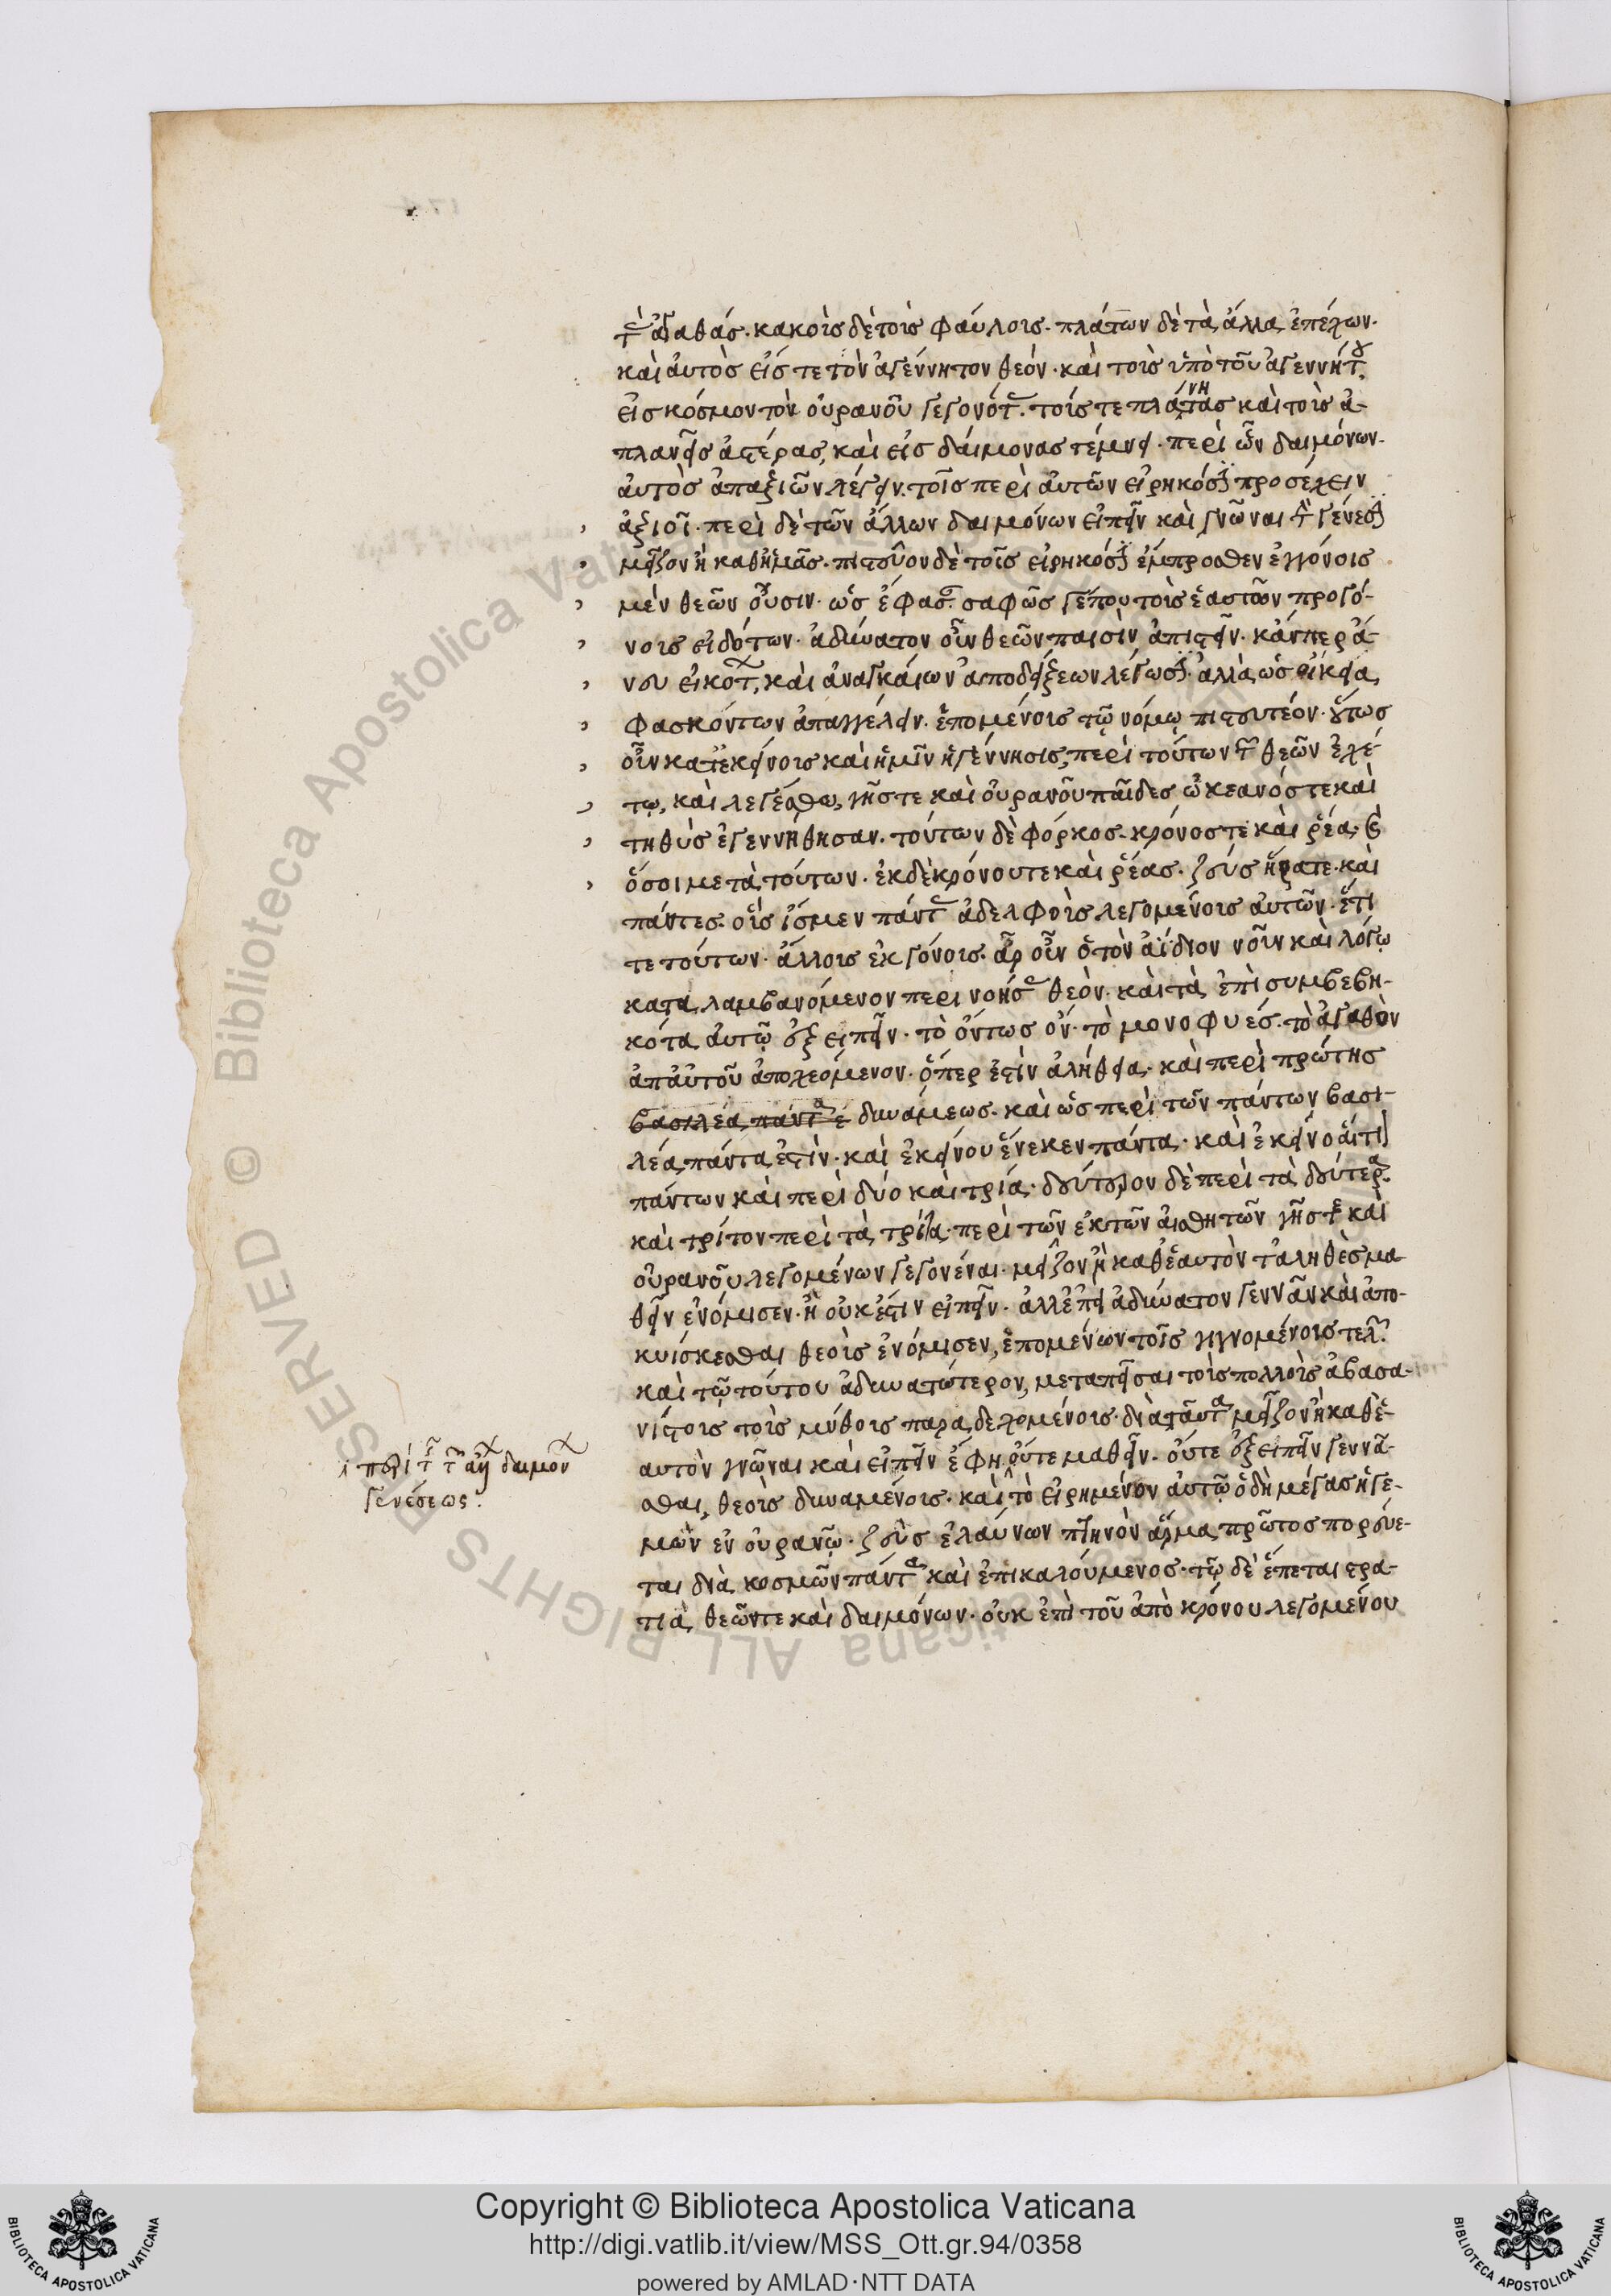 τὰς ἀγαθάς. κακοὺς δὲ τοὺς φαύλους. πλάτων δὲ τὰ ἄλλα ἐπέχων.
καὶ αὐτὸς εἴς τε τὸν ἀγέννητον θεόν. καὶ τοὺς ὑπὸ τοῦ ἀγεννήτου
εἰς κόσμον τὸν οὐρανοῦ γεγονότας. τούς τε πλάνητας καὶ τοὺς ἀ-
πλανεῖς ἀστέρας, καὶ εἰς δαίμονας τέμνει. περὶ ὧν δαιμόνων.
αὐτὸς ἀπαξιῶν λέγειν. τοῖς περὶ αὐτῶν εἰρηκόσι προσέχειν
ἀξιοῖ. περὶ δὲ τῶν ἄλλων δαιμόνων εἰπεῖν καὶ γνῶναι τὴν γένεσιν
μεῖζον ἢ καθ' ἡμᾶς. πιστεύον δὲ τοῖς εἰρηκόσιν ἔμπροσθεν ἐγγόνοις
μὲν θεῶν οὖσιν. ὡς ἔφασαν. σαφῶς γέ που τοὺς ἑαυτῶν προγό-
νους εἰδότων. ἀδύνατον οὖν θεῶν παισὶν ἀπιστεῖν. κἄνπερ ἄ-
νευ εἰκότων, καὶ ἀναγκαίων ἀποδείξεων λέγωσιν. ἀλλὰ ὡς οἰκεῖα
φασκόντων ἀπαγγέλειν. ἑπομένους τῷ νόμῳ πιστευτέον. οὕτως
οὖν κατ' ἐκείνους καὶ ἡμῖν ἡ γέννησις, περὶ τούτων τῶν θεῶν ἐχέ-
τω, καὶ λεγέσθω, γῆς τε καὶ οὐρανοῦ παῖδες ὠκεανός τε καὶ
τηθὺς ἐγεννήθησαν. τούτων δὲ φόρκος. κρόνος τε καὶ ῥέα, καὶ
ὅσοι μετὰ τούτων. ἐκ δὲ κρόνου τε καὶ ῥέας. ζεύς ἥρα τε. καὶ
πάντες. οὓς ἴσμεν πάντας ἀδελφοὺς λεγομένους αὐτῶν. ἔτι
τε τούτων. ἄλλους ἐκγόνους. ἆρ' οὖν ὁ τὸν ἀΐδιον νοῦν καὶ λόγῳ
καταλαμβανόμενον περινοήσας θεόν. καὶ τὰ ἐπισυμβεβη-
κότα αὐτῷ ἐξειπεῖν. τὸ ὄντως ὄν. τὸ μονοφυές. τὸ ἀγαθὸν
ἀπ' αὐτοῦ ἀποχεόμενον. ὅπερ ἐστὶν ἀλήθεια. καὶ περὶ πρώτης
βασιλέα πάντα ἐ δυνάμεως. καὶ ὡς περὶ τῶν πάντων βασι-
λέα πάντα ἐστίν. καὶ ἐκείνου ἕνεκεν πάντα. καὶ ἐκεῖνο αἴτιον
πάντων καὶ περὶ δύο καὶ τρία. δεύτερον δὲ περὶ τὰ δεύτερα.
καὶ τρίτον περὶ τὰ τρίτα. περὶ τῶν ἐκ τῶν αἰσθητῶν γῆς τε καὶ
οὐρανοῦ λεγομένων γεγονέναι. μεῖζον ἢ καθ' ἑαυτὸν τἀληθὲς μα
θεῖν ἐνόμισεν. ἢ οὐκ ἔστιν εἰπεῖν. ἀλλ' ἐπεὶ ἀδύνατον γεννᾶν καὶ ἀπο-
κυίσκεσθαι θεοὺς ἐνόμισεν, ἑπομένων τοῖς γιγνομένοις τελῶν.
καὶ τῷ τούτου ἀδυνατώτερον, μεταπεῖσαι τοὺς πολλοὺς ἀβασα-
νίστοις τοὺς μύθους παραδεχομένους. διὰ ταῦτα μεῖζον ἢ καθ' ἑ-
αυτὸν γνῶναι καὶ εἰπεῖν ἔφη. οὔτε μαθεῖν. οὔτε ἐξειπεῖν γεννᾶ-
σθαι, θεοὺς δυναμένους. καὶ τὸ εἰρημένον αὐτῷ ὁ δὴ μέγας ἡγε-
μὼν ἐν οὐρανῷ. ζεὺς ἐλαύνων πτηνὸν ἅρμα, πρῶτος πορεύε-
ται διὰ κοσμῶν πάντα καὶ ἐπικαλούμενος. τῷ δὲ ἕπεται στρα-
τιὰ θεῶν τε καὶ δαιμόνων. οὐκ ἐπὶ τοῦ ἀπὸ κρόνου λεγομένου
περὶ τῆς τῶν δαιμόνων
γενέσεως.
Copyright © Biblioteca Apostolica Vaticana
http://digi.vatlib.it/view/MSS_Ott.gr.94/0358
powered by AMLAD·NTT DATA